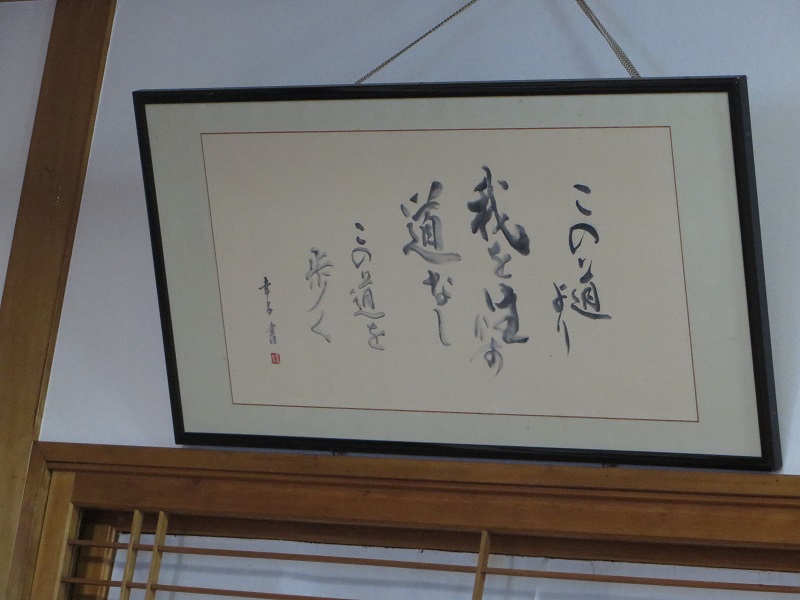 この道より
我を生かす
道なし
この道を
歩く
幸子書